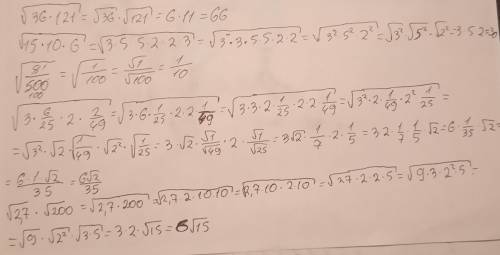 √36·121 = √36·√121 = 6·11 = 66
√15·10·6 = √3·5·5·2·2·3 = √3·3·5·5·2·2 = √3²·5²·2² = √3²·√5²·√2² = 3·5·2=30
√5¹/500 100 = √1/100 = √1/√100 = 1/10
√3·6/25·2·2/49 = √3·6·1/25·2·2·1/49 = √3·3·2·1/25·2·2·1/49 = √3²·2·1/49·2²·1/25 =
= √3²·√2·√1/49·√2²·√1/25 = 3·√2·√1/√49·2·√1/√25 = 3√2·1/7·2·1/5 = 3·2·1/7·1/5√2 = 6·1/35√2 =
= 6·1·√2/35 = 6√2/35
√2,7·√200 = √2,7·200 = √2,7·2·10·10 = √2,7·10·2·10 = √27·2·2·5 = √9·3·2²·5 =
= √9·√2²·√3·5 = 3·2·√15 = 6√15